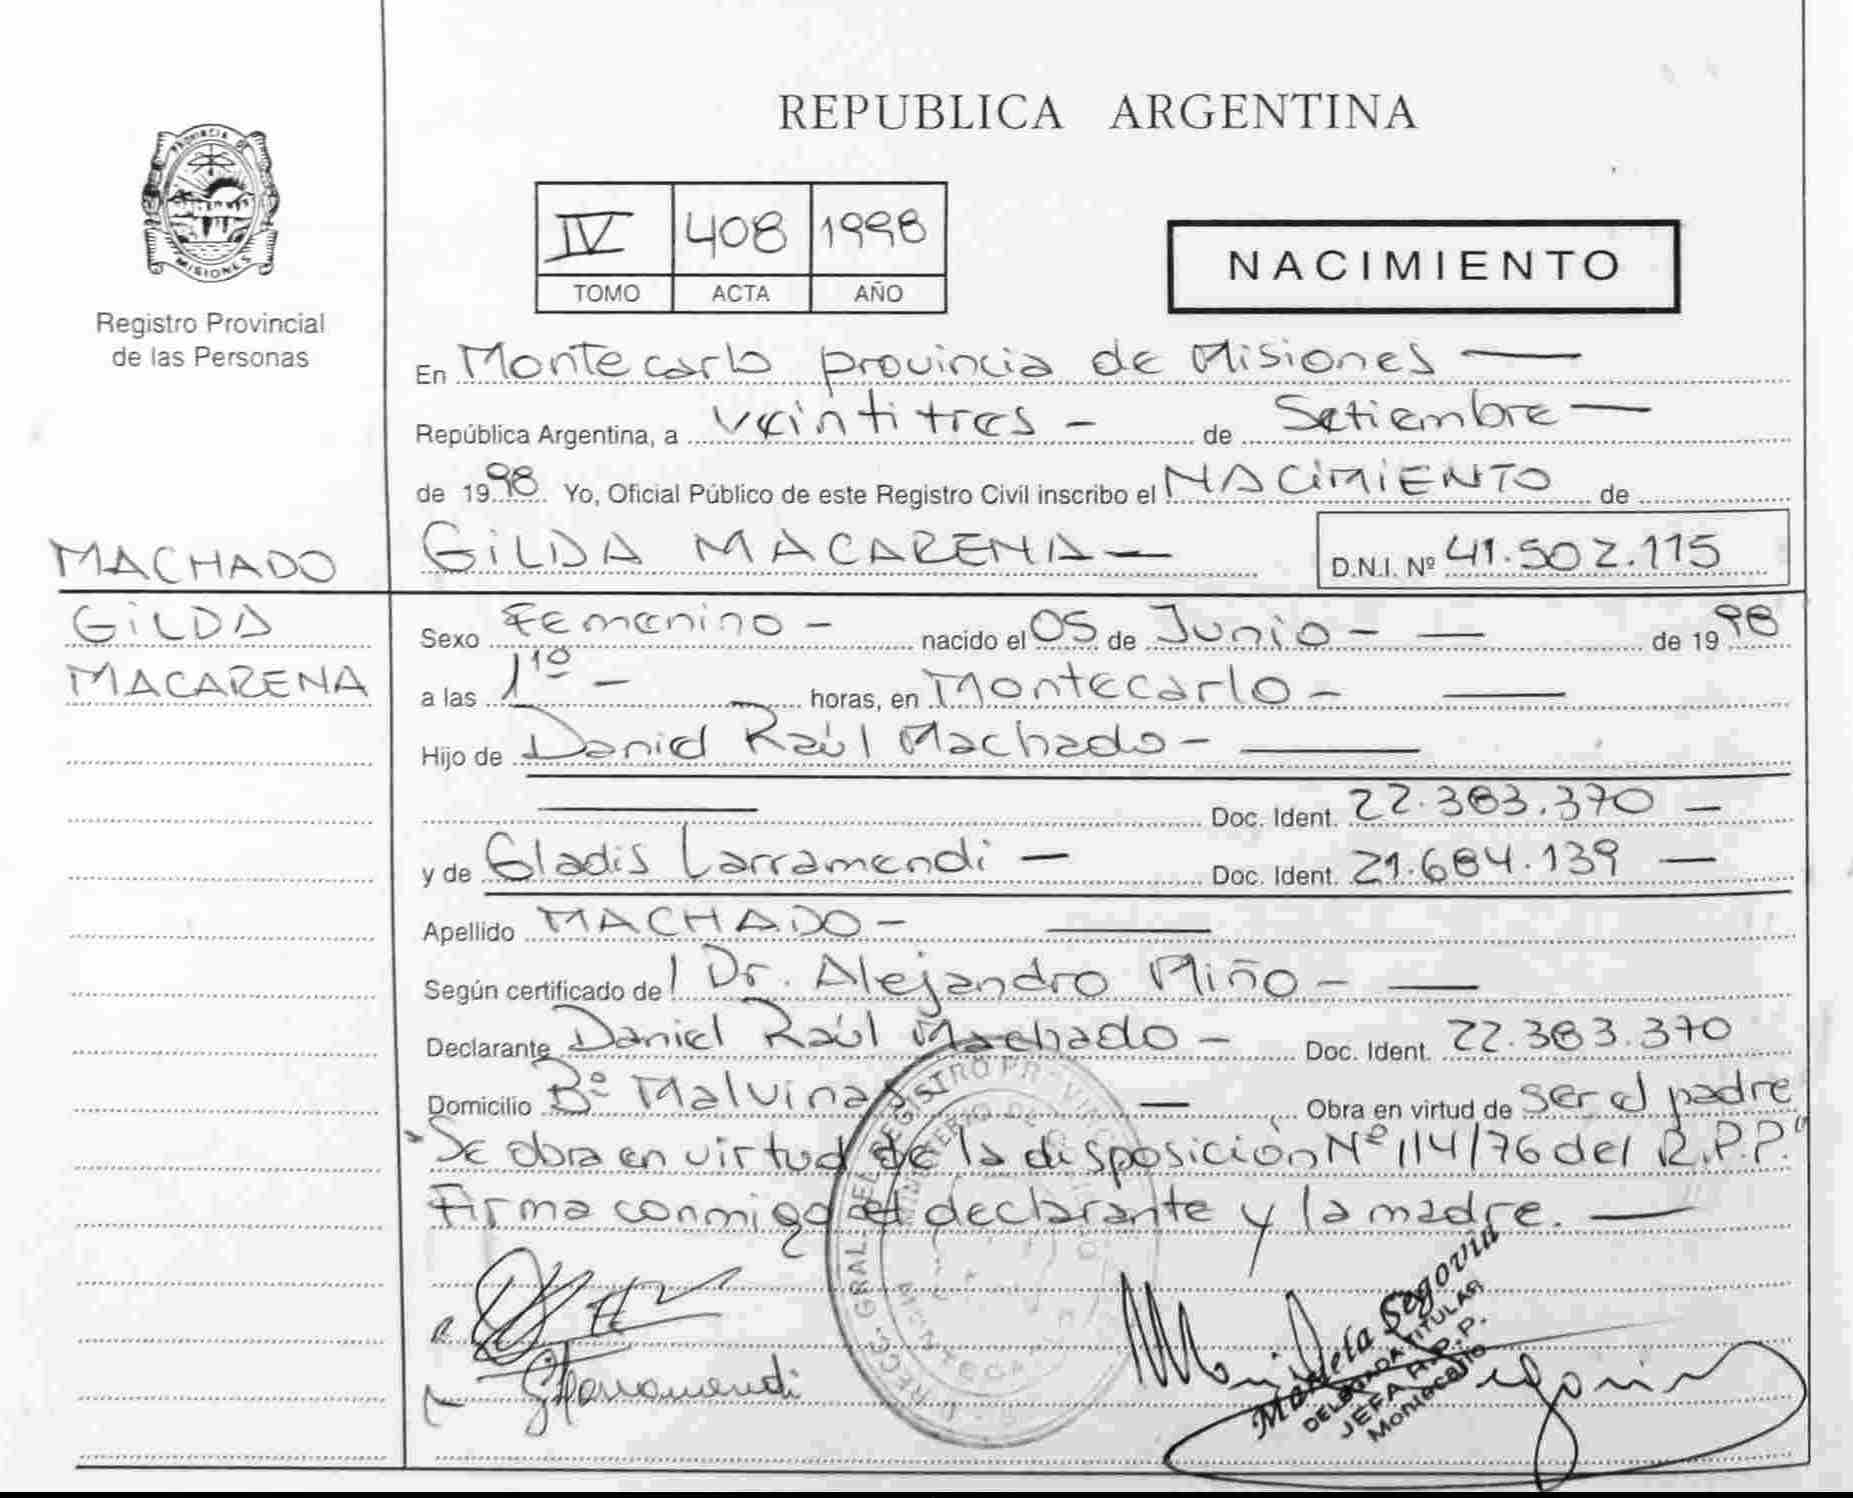 REPUBLICA ARGENTINA
PROVINCIA DE
MISIONES
Registro Provincial
de las Personas
IV 408 1998
TOMO ACTA AÑO
NACIMIENTO
En Montecarlo provincia de Misiones
República Argentina, a veintitres - de Setiembre
de 1998 Yo, Oficial Público de este Registro Civil inscribo el NACIMIENTO de
MACHADO
GILDA MACARENA — D.N.I. Nº 41.502.115
GILDA
MACARENA
Sexo Femenino - nacido el 05 de Junio - de 1998
a las 1 10 - horas, en Montecarlo -
Hijo de Daniel Raúl Machado -
Doc. Ident. 22.383.370 -
y de Gladis Larramendi - Doc. Ident. 21.684.139 -
Apellido MACHADO -
Según certificado del Dr. Alejandro Miño -
Declarante Daniel Raúl Machado - Doc. Ident. 22.383.370
Domicilio Bº Malvinas - Obra en virtud de ser el padre
"Se obra en virtud de la disposición Nº 114/76 del R.P.P."
Firma conmigo el declarante y la madre.
GLarramendi
DIRECC. GRAL. DEL REGISTRO PROVINC
MINISTERIO DE
MONTECARLO
Marileta Segovia
DELEGADA TITULAR
JEFA R.P.P.
Montecarlo